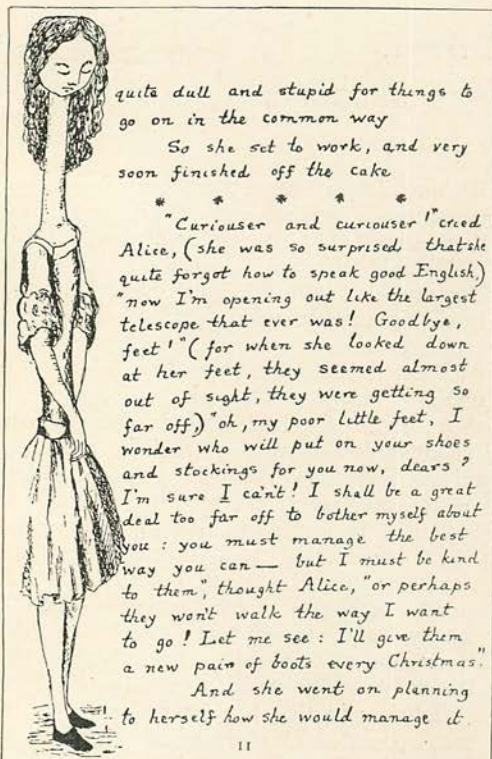 quite dull and stupid for things to
go on in the common way
So she set to work, and very
soon finished off the cake
* * * * *
"Curiouser and curiouser!" cried
Alice, (she was so surprised that she
quite forgot how to speak good English,)
"now I'm opening out like the largest
telescope that ever was! Goodbye,
feet!" (for when she looked down
at her feet, they seemed almost
out of sight, they were getting so
far off,) "oh, my poor little feet, I
wonder who will put on your shoes
and stockings for you now, dears?
I'm sure I can't! I shall be a great
deal too far off to bother myself about
you: you must manage the best
way you can — but I must be kind
to them", thought Alice, "or perhaps
they won't walk the way I want
to go! Let me see: I'll give them
a new pair of boots every Christmas."
And she went on planning
to herself how she would manage it
11